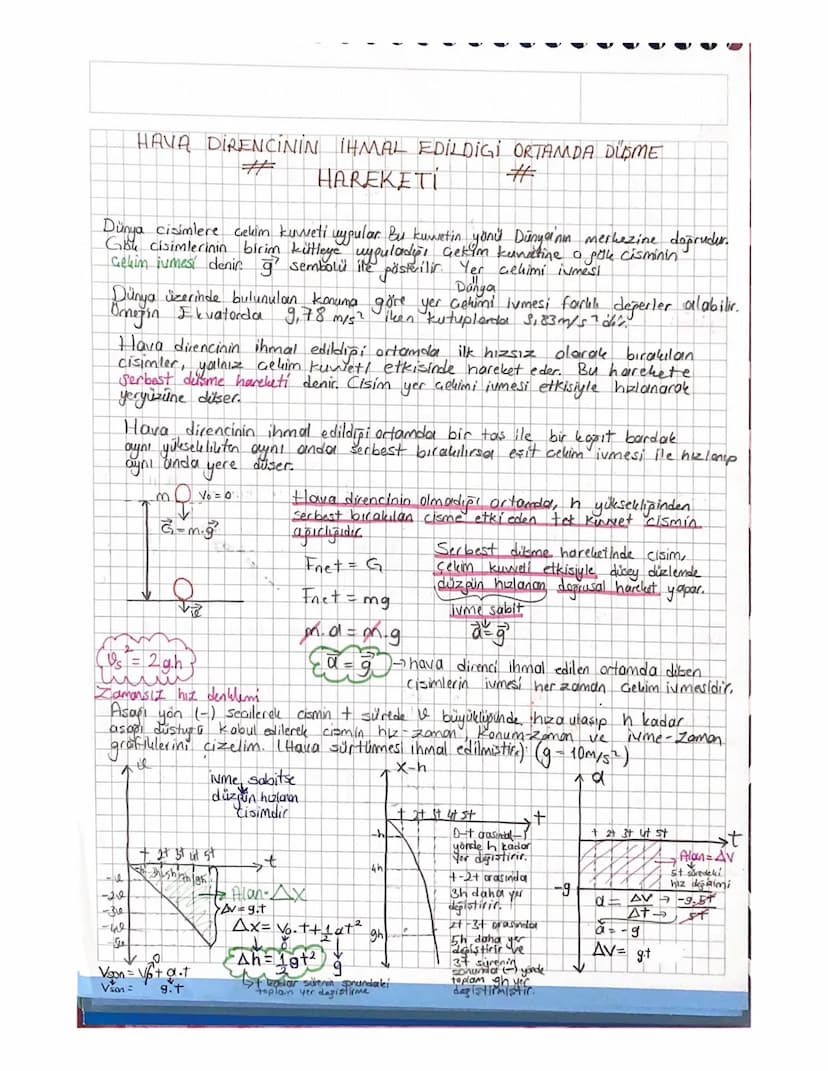 HAVA DİRENCİNİN İHMAL EDİLDİGİ ORTAMDA DÜŞME
HAREKETİ
Dünya cisimlere çekim kuvveti uygular. Bu kuvvetin yönü Dünya'nın merkezine doğrudur.
Gök cisimlerinin birim kütleye uyguladığı çekim kuvvetine o gök cisminin
çekim ivmesi denir. g sembolü ile gösterilir. Yer çekimi ivmesi
Dünya
Dünya üzerinde bulunulan konuma göre yer çekimi ivmesi farklı değerler alabilir.
Örneğin Ekvatorda 9,78 m/s² iken kutuplarda 9,83 m/s² dir.
Hava direncinin ihmal edildiği ortamda ilk hızsız olarak bırakılan
cisimler, yalnız çekim kuvveti etkisinde hareket eder. Bu harekete
serbest düşme hareketi denir. Cisim yer çekimi ivmesi etkisiyle hızlanarak
yeryüzüne düşer.
Hava direncinin ihmal edildiği ortamda bir taş ile bir kağıt bardak
aynı yükseklikten aynı anda serbest bırakılırsa eşit çekim ivmesi ile hızlanıp
aynı anda yere düşer.
m V₀=0
G=m.g
h
v
Hava direncinin olmadığı ortamda, h yüksekliğinden
serbest bırakılan cisme etki eden tek kuvvet cismin
ağırlığıdır.
Fnet = G
Fnet = mg
m.a = m.g
a = g → hava direnci ihmal edilen ortamda düşen
cisimlerin ivmesi her zaman çekim ivmesidir.
Serbest düşme hareketinde cisim,
çekim kuvveti etkisiyle düşey düzlemde
düzgün hızlanan doğrusal hareket yapar.
ivme sabit
a=g
Vs² = 2gh
Zamansız hız denklemi
Aşağı yön (-) seçilerek cismin t sürede v büyüklüğünde hıza ulaşıp h kadar
aşağı düştüğü kabul edilerek cismin hız-zaman, konum-zaman ve ivme-zaman
grafiklerini çizelim. (Hava sürtünmesi ihmal edilmiştir.) (g = 10m/s²)
v
ivme sabitse
düzgün hızlanan
cisimdir
t 2t 3t 4t 5t t
h 3h 5h 7h 9h
-v
-2v
-3v
-4v
-5v
Alan=Δx
Δv=g.t
Δx= V₀.t+1/2at²
0 g
Δh=1/2gt²
t kadar sürenin sonundaki
toplam yer değiştirme
Vson = V₀ + a.t
0
Vson = g.t
x-h
t 2t 3t 4t 5t t
-h
4h
9h
0-t arasında (-)
yönde h kadar
yer değiştirir.
t-2t arasında
3h daha yer
değiştirir.
2t-3t arasında
5h daha yer
değiştirir ve
3t sürenin
sonunda (-) yönde
toplam 9h yer
değiştirmiştir.
a
t 2t 3t 4t 5t t
-g
Alan=ΔV
5t süredeki
hız değişimi
a = ΔV/Δt → -g.5t/5t
a = -g
ΔV= g.t